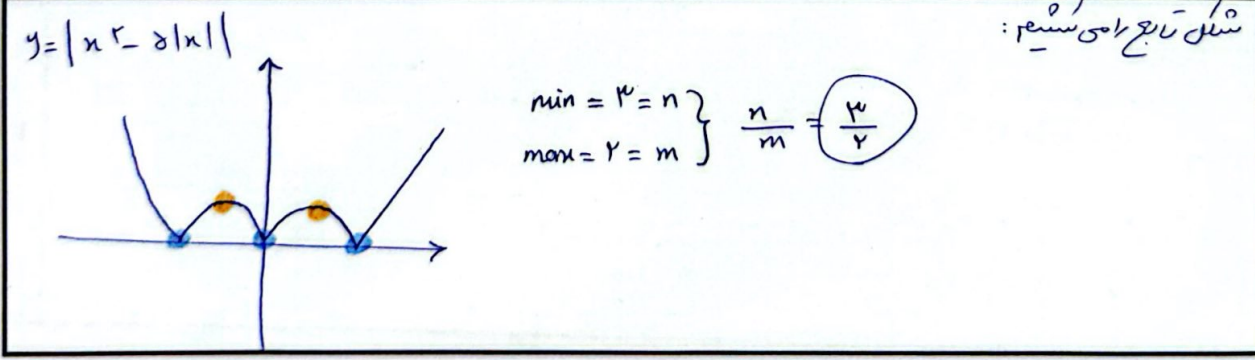 شکل تابع را می‌کشیم:
y=|x²-۵|x||
min = ۳ = n
max = ۲ = m
} n/m = ۳/۲